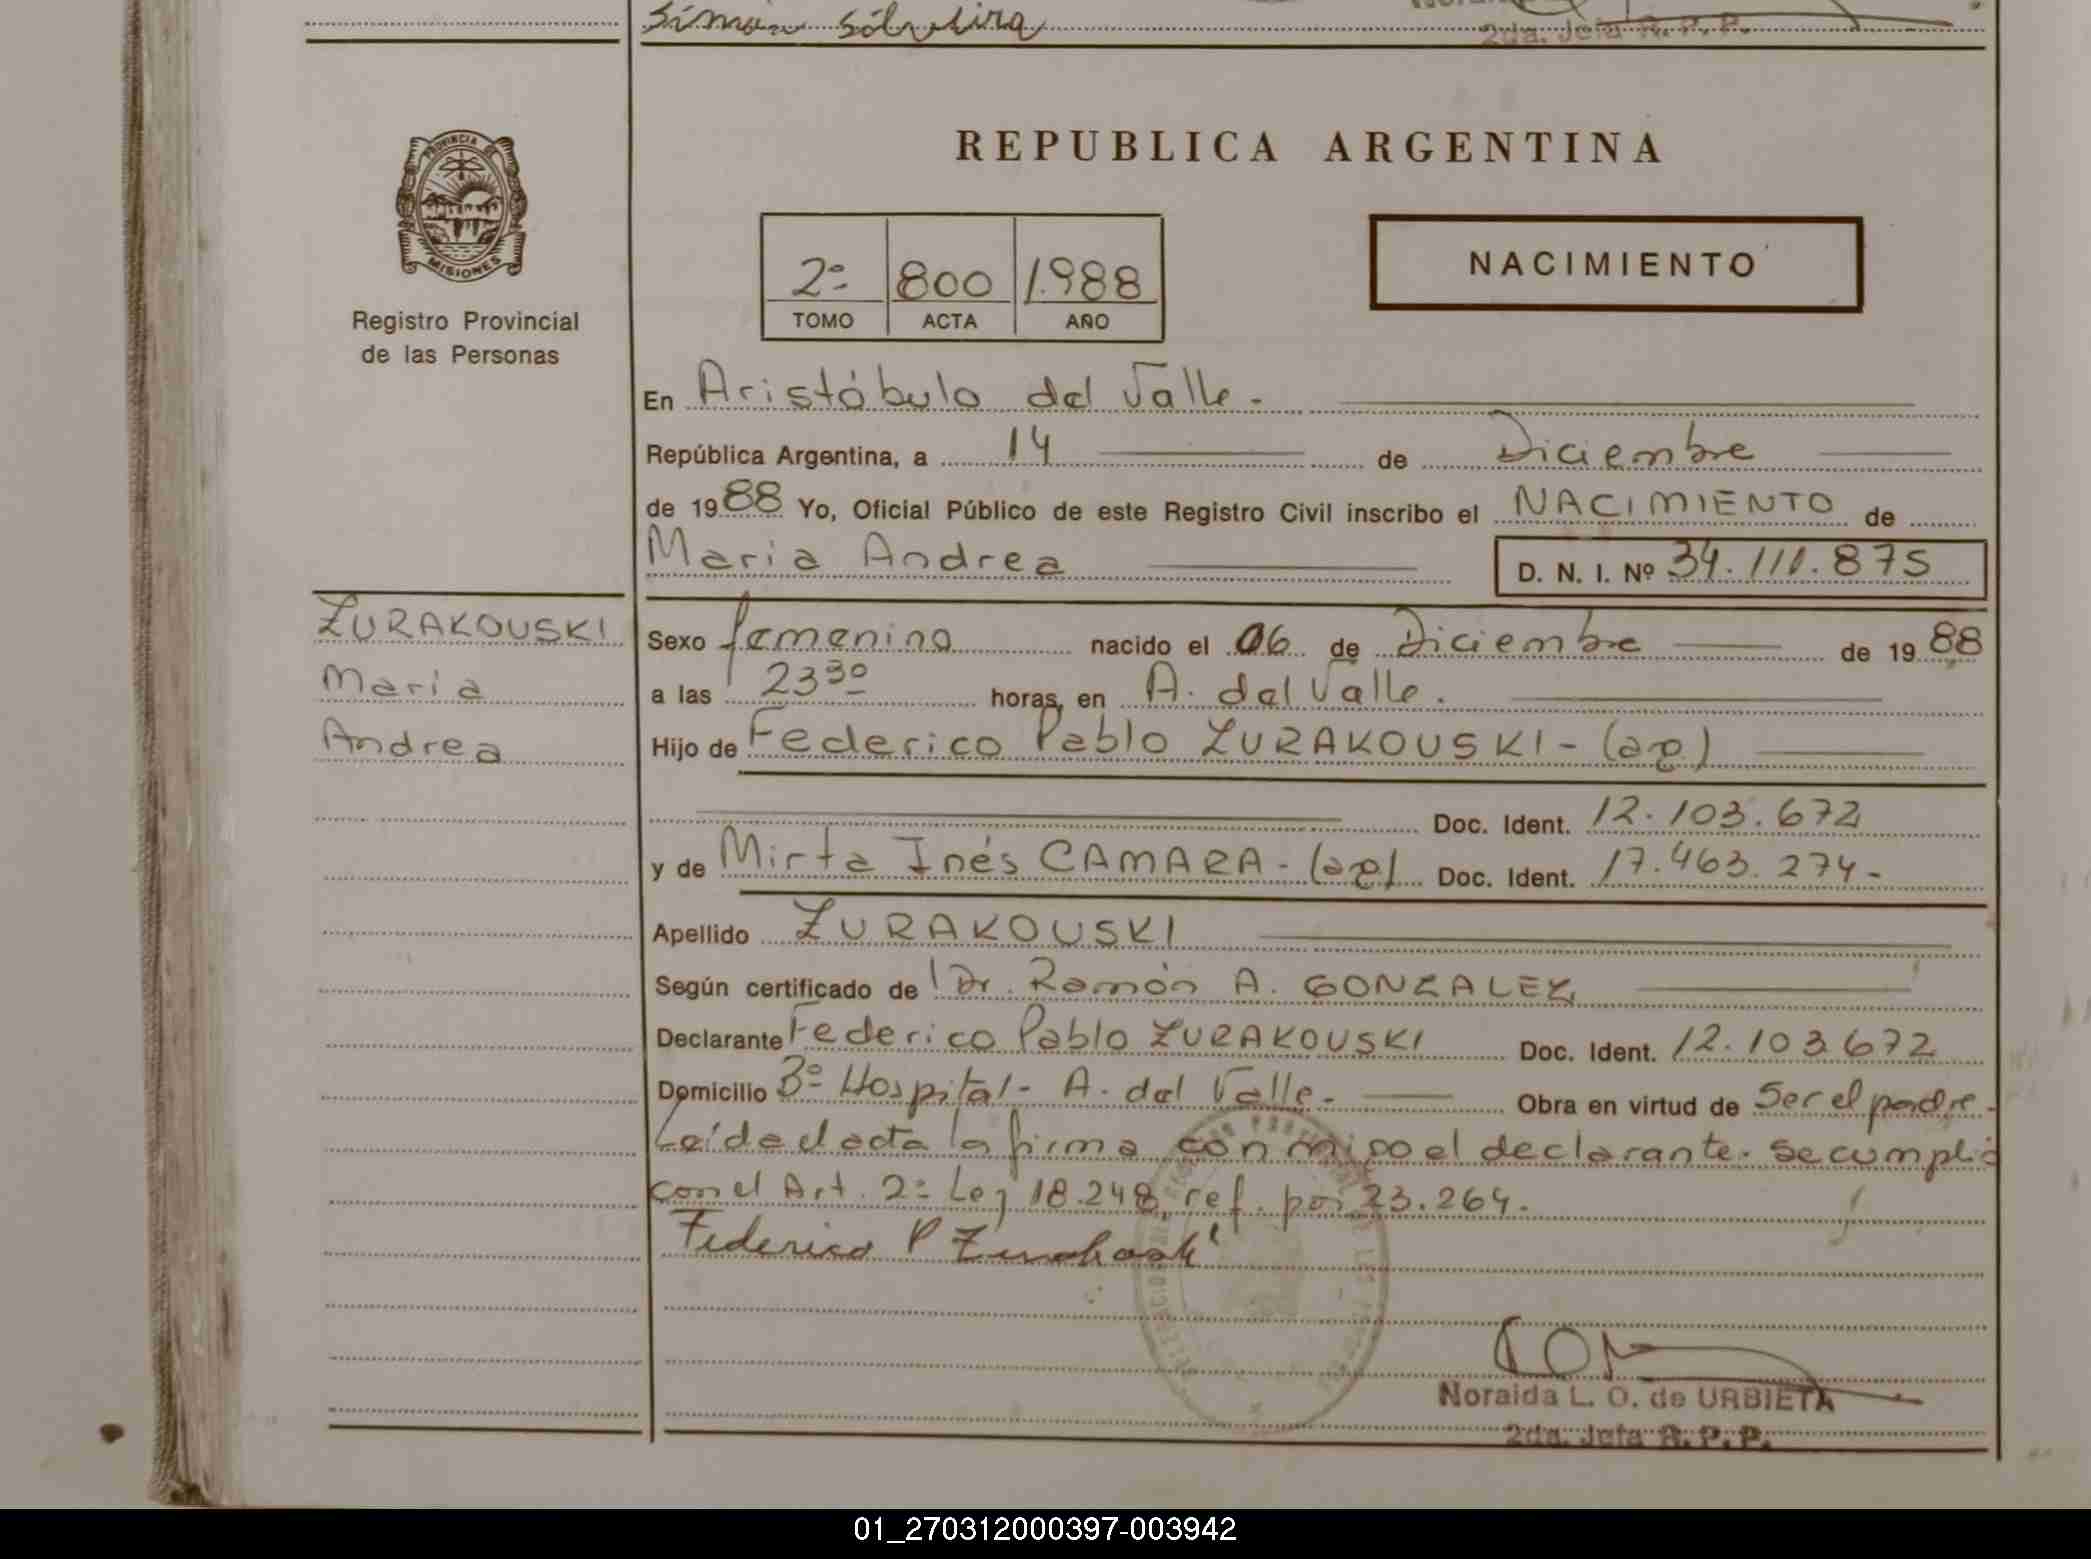 Simon Silveira
2da. Jefa R. P. P.
PROVINCIA DE
MISIONES
Registro Provincial
de las Personas
REPUBLICA ARGENTINA
2º 800 1.988
TOMO ACTA AÑO
NACIMIENTO
En Aristóbulo del Valle.-
República Argentina, a 14 de Diciembre
de 1988 Yo, Oficial Público de este Registro Civil inscribo el NACIMIENTO de
Maria Andrea D. N. I. Nº 34.111.875
ZURAKOUSKI
Maria
Andrea
Sexo femenino nacido el 06 de Diciembre de 1988
a las 23 30 horas, en A. del Valle.
Hijo de Federico Pablo ZURAKOUSKI - (ag)
Doc. Ident. 12.103.672
y de Mirta Inés CAMARA - (ag) Doc. Ident. 17.463.274-
Apellido ZURAKOUSKI
Según certificado de Dr. Ramón A. GONZALEZ
Declarante Federico Pablo ZURAKOUSKI Doc. Ident. 12.103.672
Domicilio Bº Hospital - A. del Valle.- Obra en virtud de Ser el padre.-
Leída el acta la firma conmigo el declarante. Se cumplió
con el Art. 2º Ley 18.248, ref. por 23.264.
Federico P Zurakouski
Noraida L. O. de URBIETA
2da. Jefa R. P. P.
01_270312000397-003942